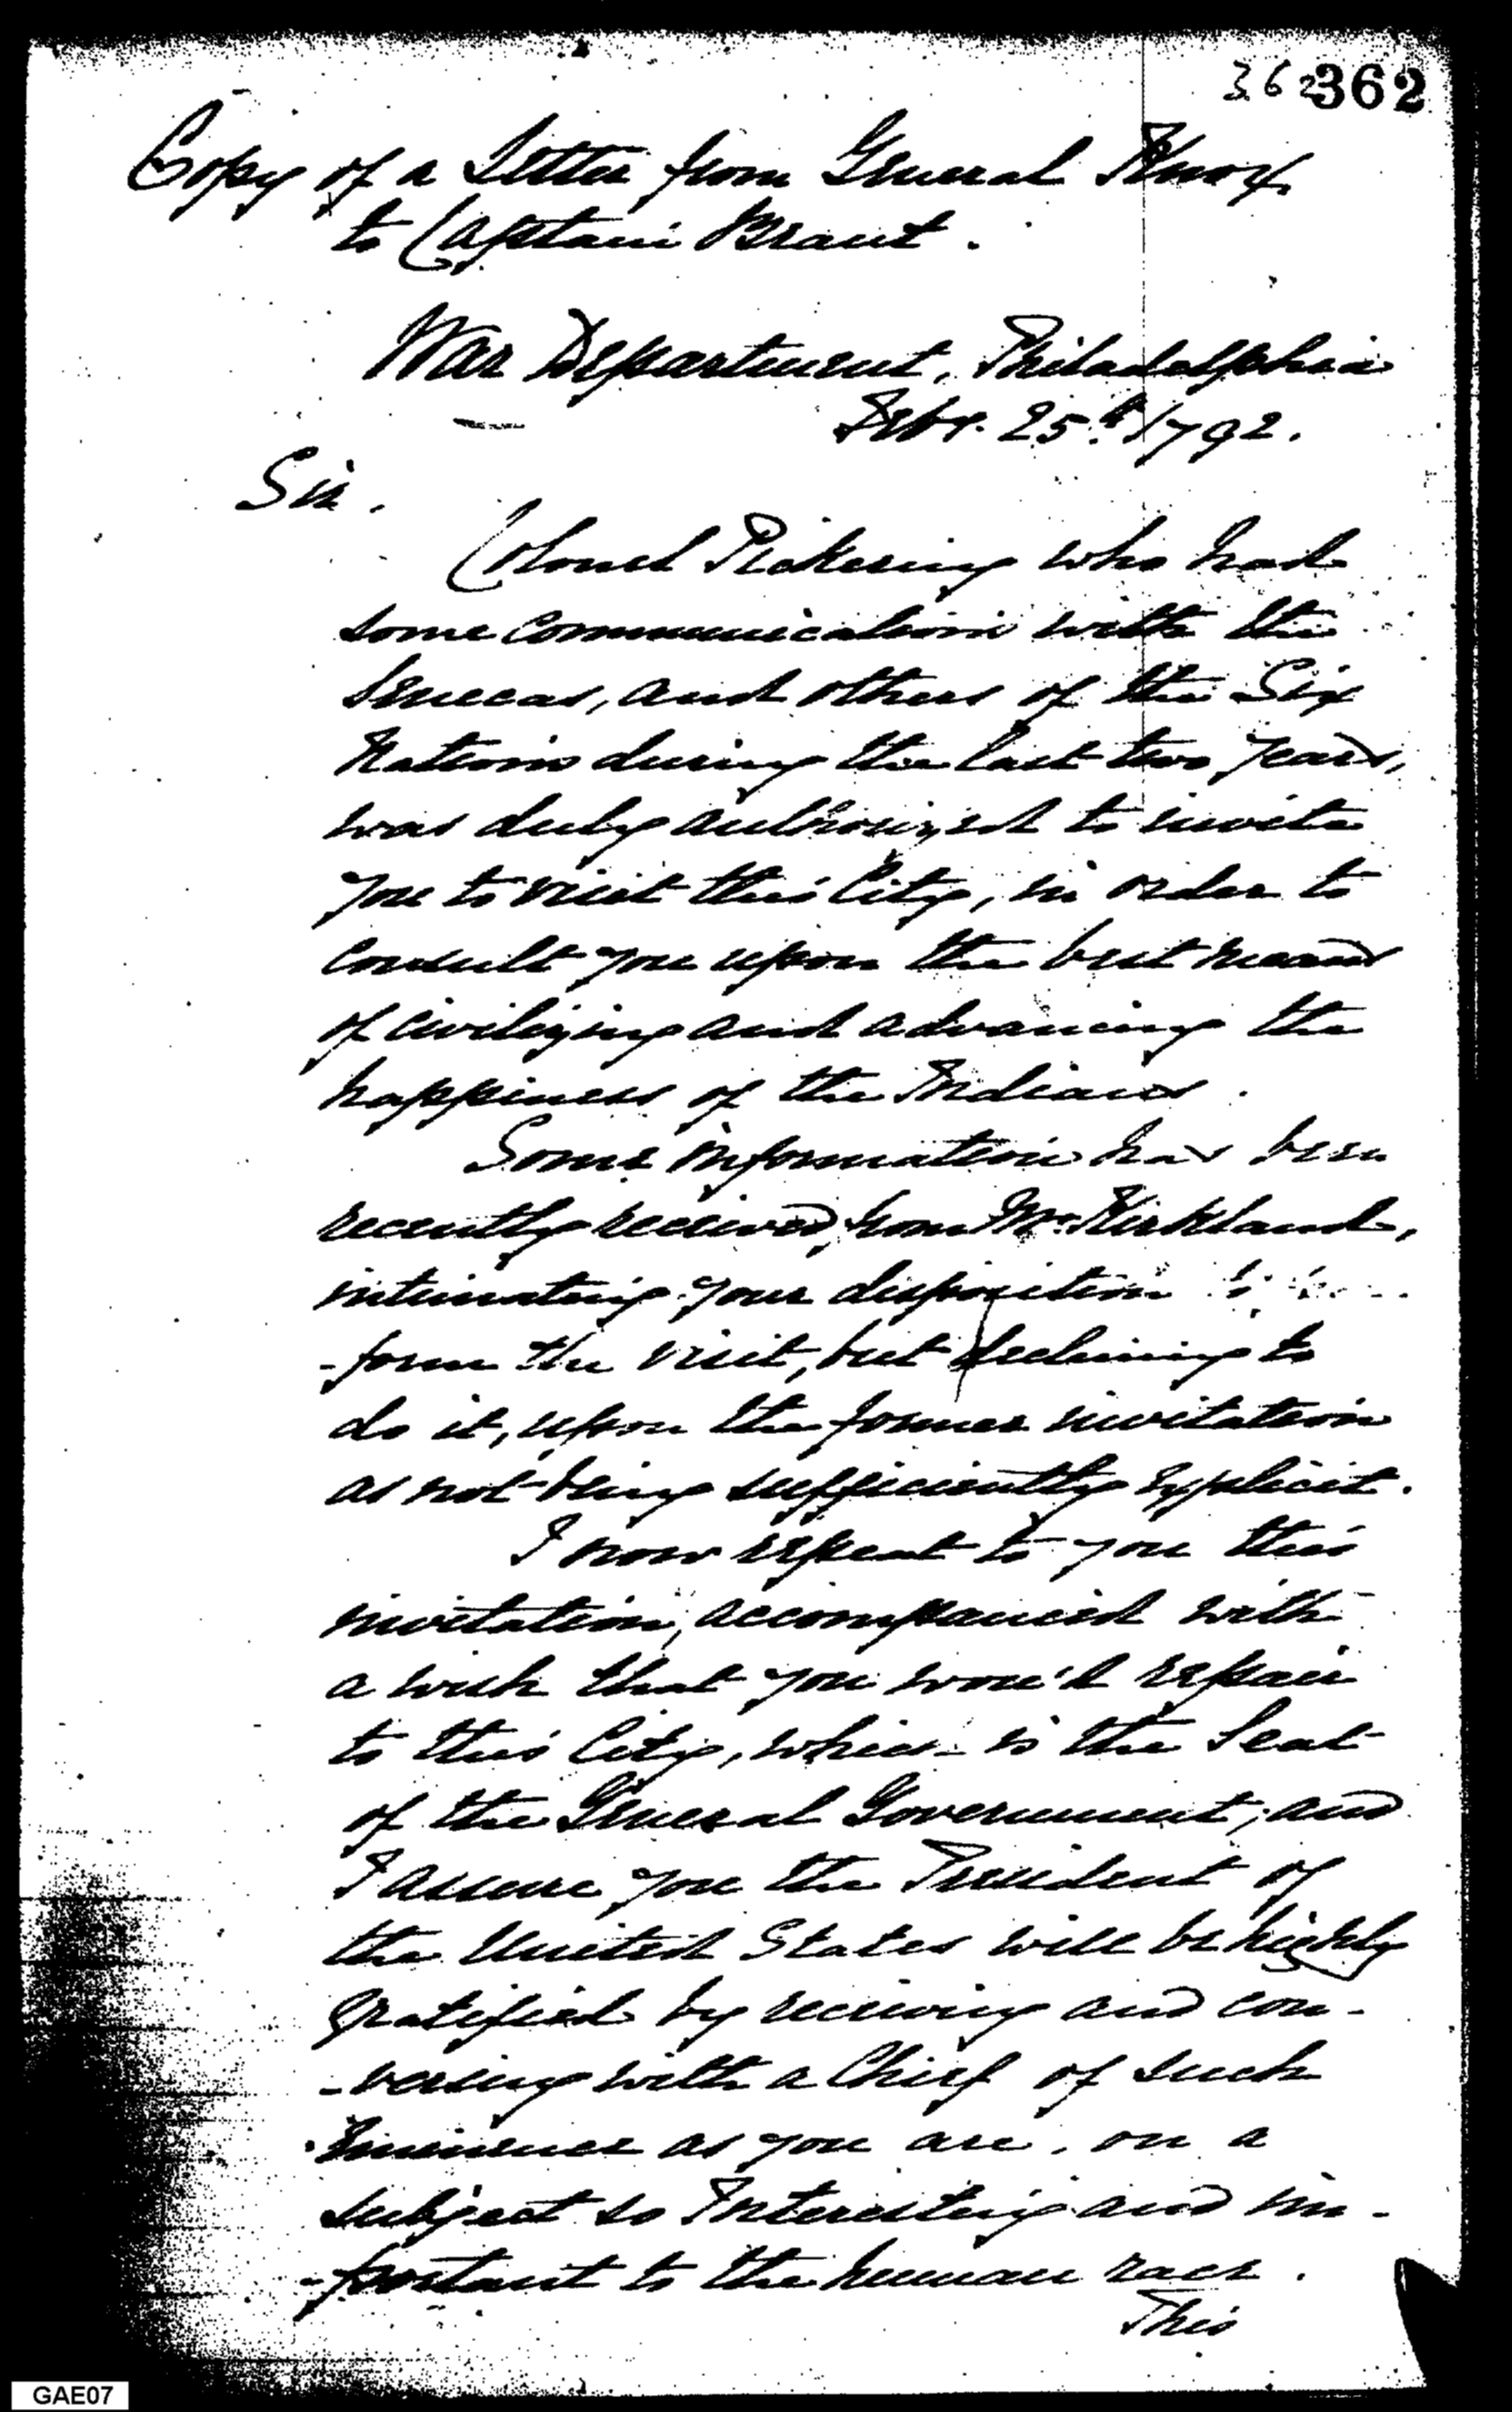 362 362
Copy of a Letter from General Knox
to Captain Brant.
War Department, Philadelphia
Febr. 25th 1792.
Sir.
Colonel Pickering who had
some communication with the
Senecas, and others of the Six
Nations during the last two years,
was duly authorized to invite
you to visit this City, in order to
consult you upon the best means
of civilizing and advancing the
happiness of the Indians.
Some information has been
recently received, from Mr. Kirkland,
intimating your disposition to
-form the visit, but declining to
do it, upon the former invitation
as not being sufficiently explicit.
I now repeat to you this
invitation, accompanied with
a wish that you wou'd repair
to this City, which is the Seat
of the General Government, and
I assure you the President of
the United States will be highly
gratified by receiving and con-
-versing with a Chief of such
Eminence as you are, on a
subject so Interesting and im-
-portant to the human race.
This
GAE07